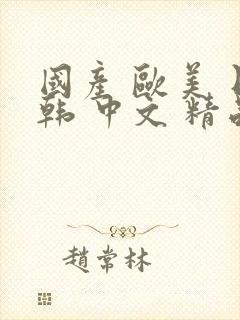 國産歐美
韩中文精
趙常林